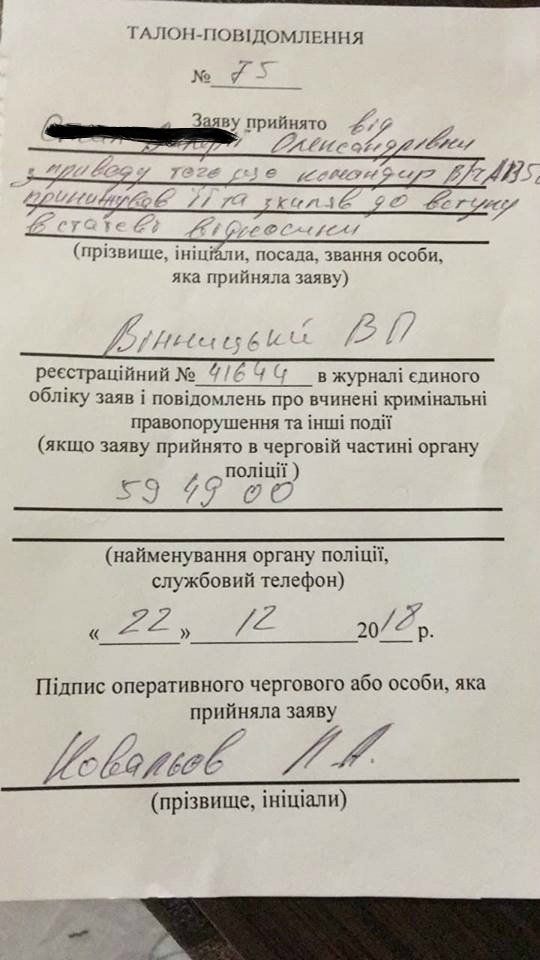 ТАЛОН-ПОВІДОМЛЕННЯ
№ 75
Заяву прийнято від
Олександрівни
з приводу того що командир в/ч
принижував її та схиляв до вступу
в статеві відносини
(прізвище, ініціали, посада, звання особи,
яка прийняла заяву)
Вінницький ВП
реєстраційний № 41644 в журналі єдиного
обліку заяв і повідомлень про вчинені кримінальні
правопорушення та інші події
(якщо заяву прийнято в черговій частині органу
поліції )
59 49 00
(найменування органу поліції,
службовий телефон)
« 22 » 12 2018 р.
Підпис оперативного чергового або особи, яка
прийняла заяву
Ковальов
(прізвище, ініціали)